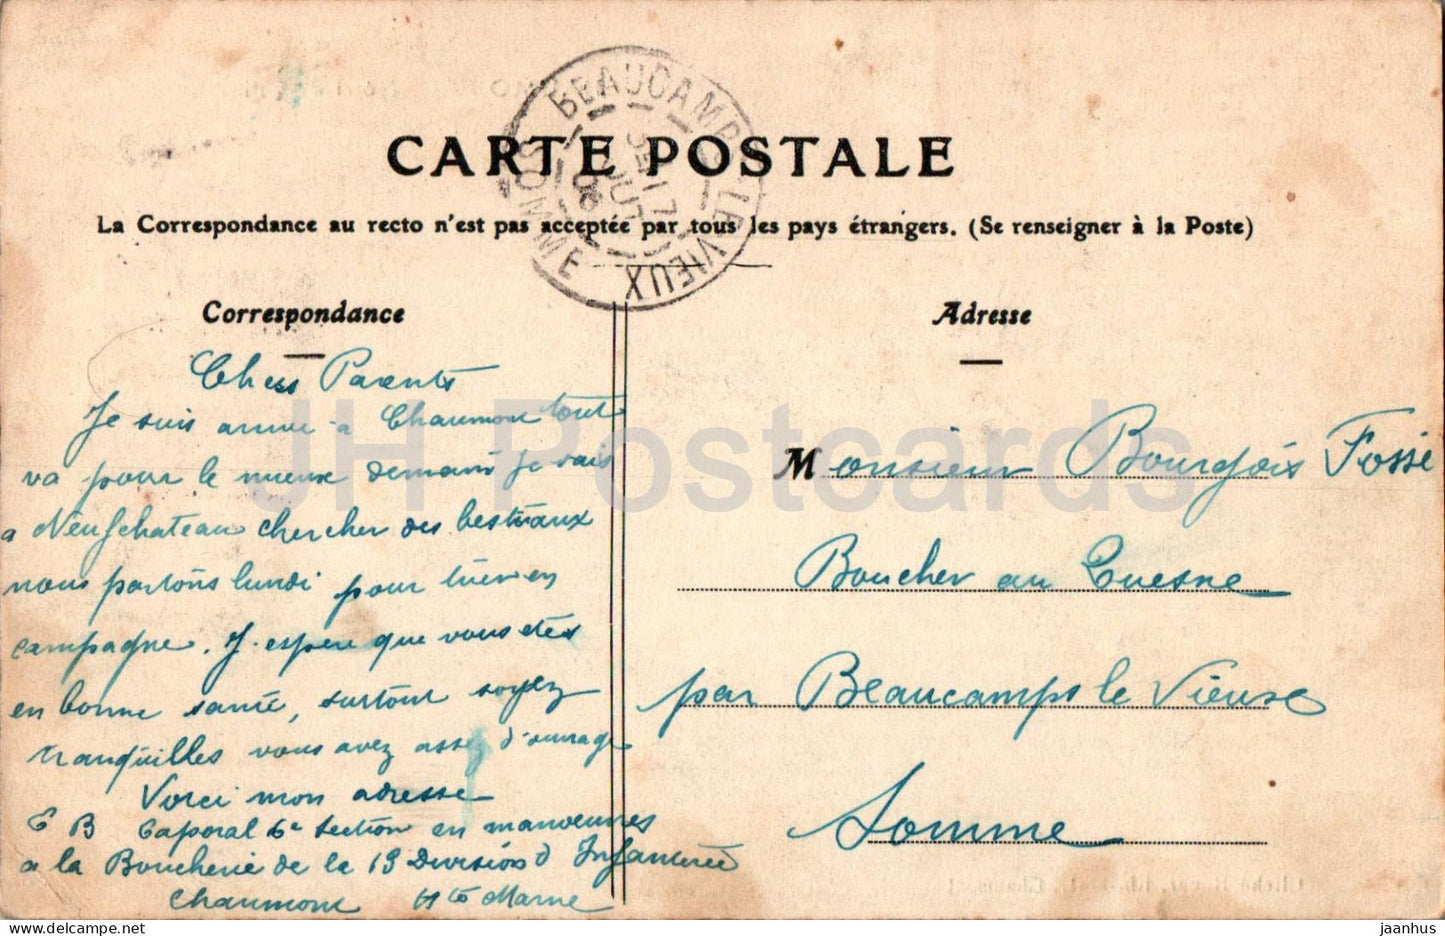 BEAUCAMPS-LE-VIEUX
SOMME
CARTE POSTALE
La Correspondance au recto n'est pas acceptée par tous les pays étrangers. (Se renseigner à la Poste)
Correspondance
Chers Parents
Je suis arrivé a Chaumont tout
va pour le mieux demain je vais
a Neufchateau chercher des bestiaux
nous partons lundi pour tuer en
campagne. J. espere que vous etes
en bonne santé, surtout soyez
tranquilles vous avez assez d'ouvrage
Voici mon adresse
E B Caporal 6e Section en manoeuvres
a la Boucherie de la 13 Division d Infanterie
Chaumont Hte Marne
Adresse
Monsieur Bourgois Fossé
Boucher au Quesne
par Beaucamps le Vieux
Somme
JH Postcards
jaanhus
delcampe.net